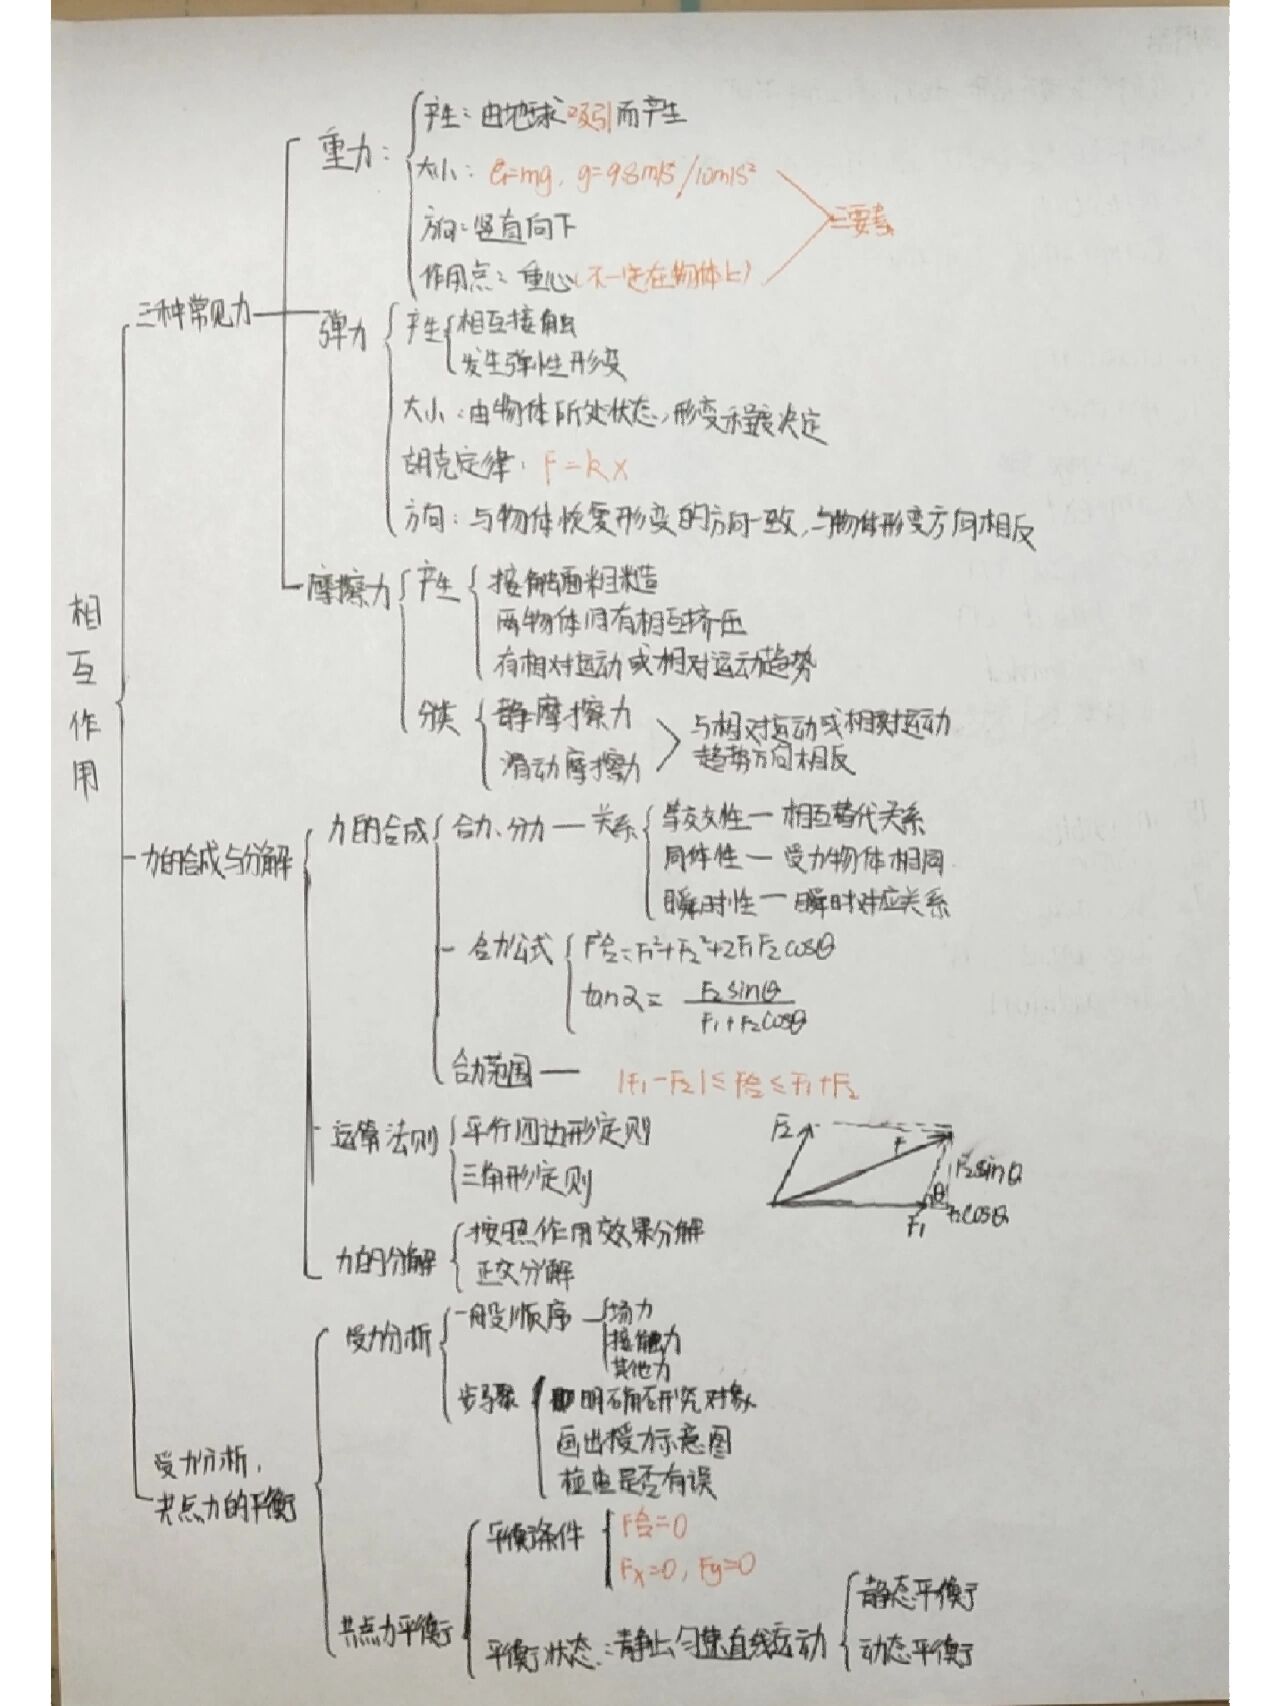 相互作用
三种常见力
重力：
产生：由地球吸引而产生
大小：G=mg，g=9.8m/s²/10m/s²
方向：竖直向下
作用点：重心（不一定在物体上）
三要素
弹力
产生
相互接触
发生弹性形变
大小：由物体所处状态，形变程度决定
胡克定律：F=kx
方向：与物体恢复形变的方向一致，与物体形变方向相反
摩擦力
产生
接触面粗糙
两物体间有相互挤压
有相对运动或相对运动趋势
分类
静摩擦力
滑动摩擦力
与相对运动或相对运动
趋势方向相反
力的合成与分解
力的合成
合力、分力—关系
等效性—相互替代关系
同体性—受力物体相同
瞬时性—瞬时对应关系
合力公式
F合=F₁²+F₂²+2F₁F₂cosθ
tanα= F₂sinθ
F₁+F₂cosθ
合力范围—|F₁-F₂|≤F合≤F₁+F₂
运算法则
平行四边形定则
三角形定则
F₂
F
F₂sinθ
θ
F₁
F₂cosθ
力的分解
按照作用效果分解
正交分解
受力分析，
共点力的平衡
受力分析
一般顺序
场力
接触力
其他力
步骤
明确研究对象
画出受力示意图
检查是否有误
共点力平衡
平衡条件
F合=0
Fx=0，Fy=0
平衡状态：静止、匀速直线运动
静态平衡
动态平衡